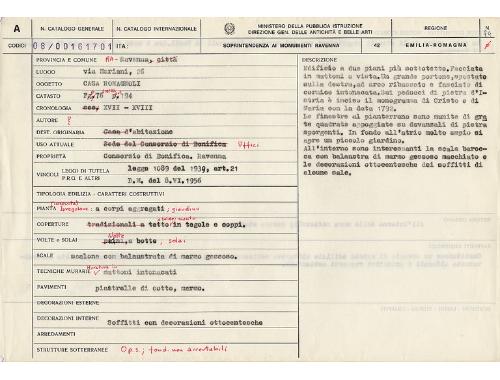 A
N. CATALOGO GENERALE
N. CATALOGO INTERNAZIONALE
MINISTERO DELLA PUBBLICA ISTRUZIONE
DIREZIONE GEN. DELLE ANTICHITÀ E BELLE ARTI
REGIONE
N.
CODICI
08/00161701
ITA:
SOPRINTENDENZA AI MONUMENTI RAVENNA
42
EMILIA-ROMAGNA
PROVINCIA E COMUNE RA-Ravenna, città
LUOGO via Mariani, 26
OGGETTO CASA ROMAGNOLI
CATASTO F. 76 p. 194
CRONOLOGIA sec. XVII - XVIII
AUTORE ?
DEST. ORIGINARIA Casa d'abitazione
USO ATTUALE Sede del Consorzio di Bonifica Uffici
PROPRIETÀ Consorzio di Bonifica, Ravenna
VINCOLI LEGGI DI TUTELA legge 1089 del 1939, art.21
P.R.G. E ALTRI D.M. del 8.VI.1956
TIPOLOGIA EDILIZIA - CARATTERI COSTRUTTIVI
PIANTA irregolare: a corpi aggregati; giardino
COPERTURE tradizionali a tetto in tegole e coppi.
VOLTE e SOLAI a botte, solai
SCALE scalone con balaustrata di marmo gessoso.
TECNICHE MURARIE mattoni intonacati
PAVIMENTI piastrelle di cotto, marmo.
DECORAZIONI ESTERNE
DECORAZIONI INTERNE Soffitti con decorazioni ottocentesche
ARREDAMENTI
STRUTTURE SOTTERRANEE
DESCRIZIONE
Edificio a due piani più sottotetto. Facciata
in mattoni a vista. Un grande portone, spostato
sulla destra, ad arco ribassato e fasciato di
cornice intonacata. Nei peducci di pietra d'I-
stria è inciso il monogramma di Cristo e di
Maria con la data 1792.
Le finestre al pianterreno sono munite di gra
te quadrate appoggiate su davanzali di pietra
sporgenti. In fondo all'atrio molto ampio si
apre un piccolo giardino.
All'interno sono interessanti la scala baroc-
ca con balaustra di marmo gessoso macchiato e
le decorazioni ottocentesche dei soffitti di
alcune sale.